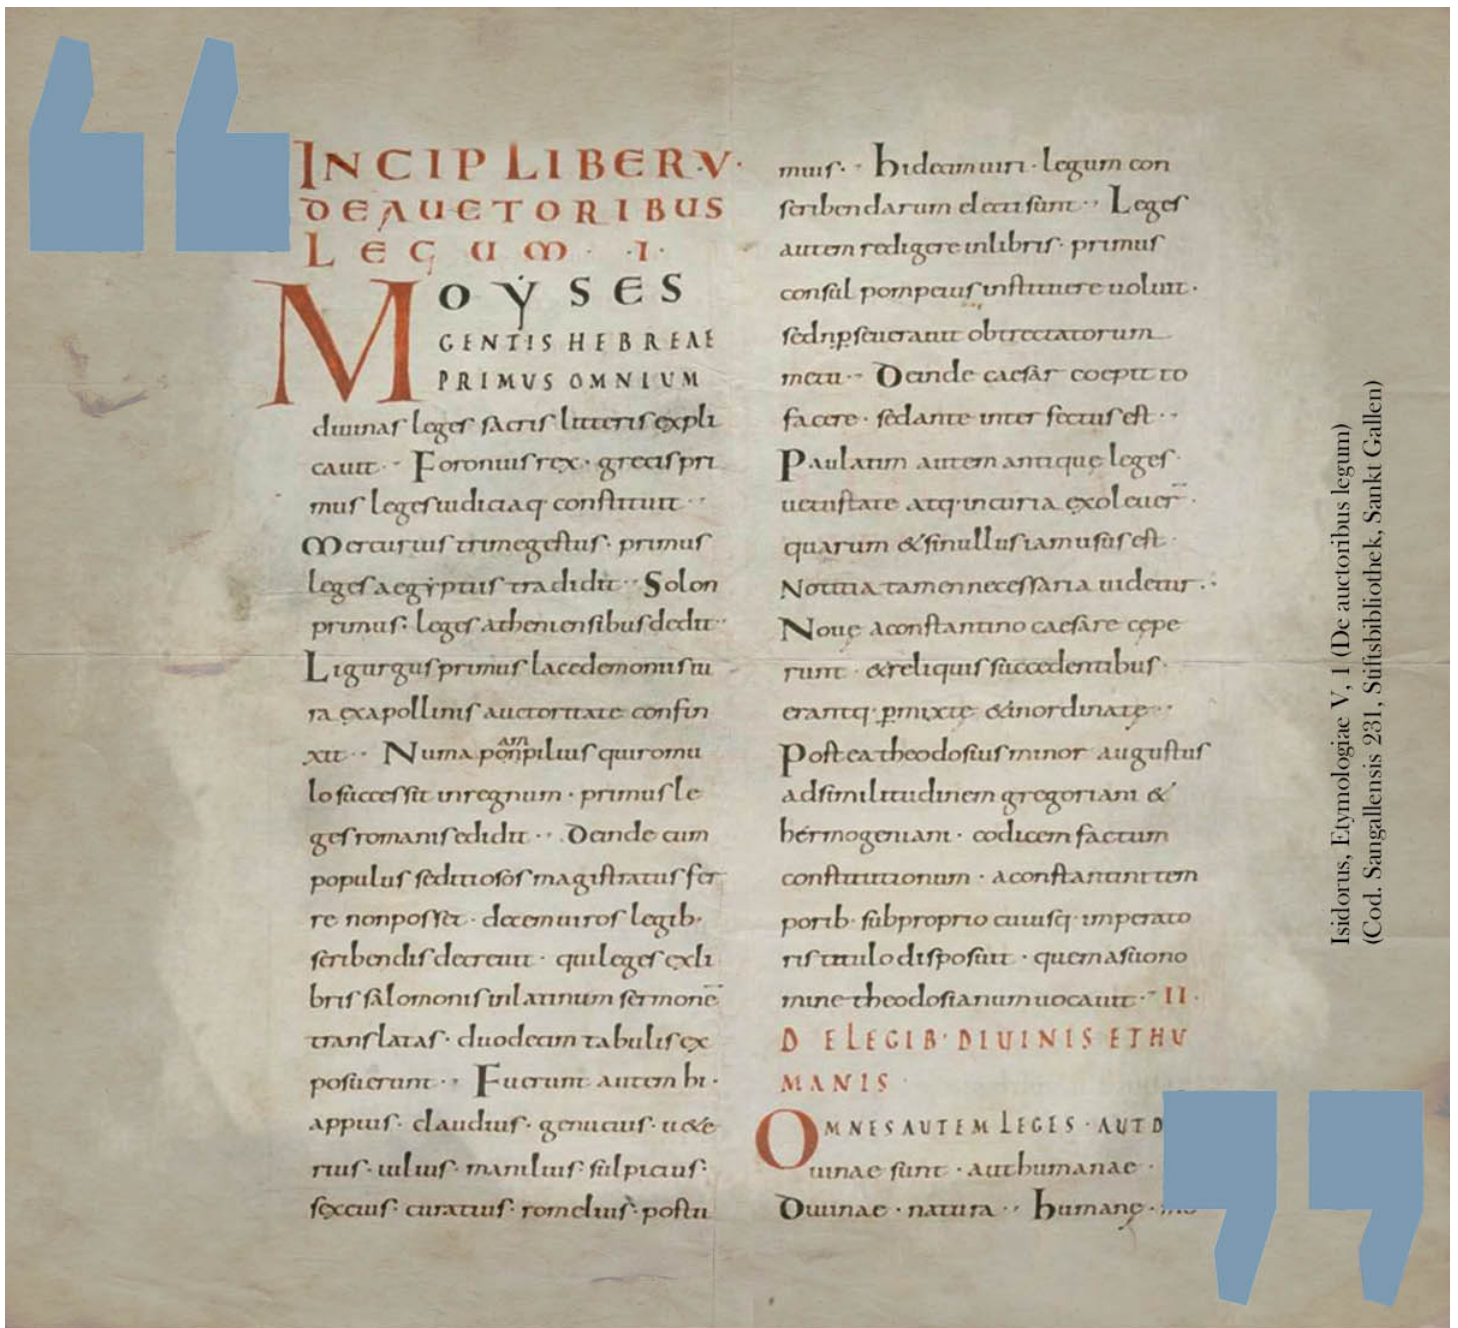 INCIP LIBER·V·
DE AUCTORIBUS
LEGUM · ·I·
MOYSES
GENTIS HEBREAE
PRIMUS OMNIUM
diuinas leges sacris litteris expli
cauit · Foroneus rex · grecis pri
mus leges iudiciaq· constituit ··
Mercurius trimegestus · primus
leges aegyptiis tradidit ·· Solon
primus · leges atheniensibus dedit ··
Ligurgus primus lacedemoniis iu
ra ex apollinis auctoritate confin
xit ·· Numa pompilius qui romu
lo successit in regnum · primus le
ges romanis edidit ·· Deinde cum
populus seditiosos magistratus fer
re non posset · decemuiros legib·
scribendis decreuit · qui leges ex li
bris salomonis in latinum sermonē
translatas · duodecim tabulis ex
posuerunt ·· Fuerunt autem hi ·
appius · claudius · genucius · u&e
rius · iulius · manilius · sulpicius ·
sextius · curatius · romelius · postu
mius ·· hideam uiri · legum con
scribendarum electi sunt ·· Leges
autem redigere in libris · primus
consul pompeius instituere uoluit ·
sed n p̱seuerauit obtrectatorum
metu ·· Deinde caesar coepit to
facere · sed ante inter fectus est ··
Paulatim autem antique leges ·
uetustate atq· incuria exoleuer̄ ·
quarum & si nullus iam usus est ·
Notitia tamen necessaria uidetur ··
Noue a constantino caesare cepe
runt · & reliquis succedentibus ·
erantq· p̱mixte & inordinate ··
Postea theodosius minor augustus
ad similitudinem gregoriani &
hermogeniani · codicem factum
constitutionum · a constantini tem
porib· sub proprio cuiusq· imperato
ris titulo disposuit · quem a suo no
mine theodosianum uocauit ·· II ·
DE LEGIB· DIUINIS ET HU
MANIS ·
OMNES AUTEM LEGES · AUT D
iuinae sunt · aut humanae ·
Diuinae · natura ·· humane ·
Isidorus, Etymologiae V, 1 (De auctoribus legum)
(Cod. Sangallensis 231, Stiftsbibliothek, Sankt Gallen)